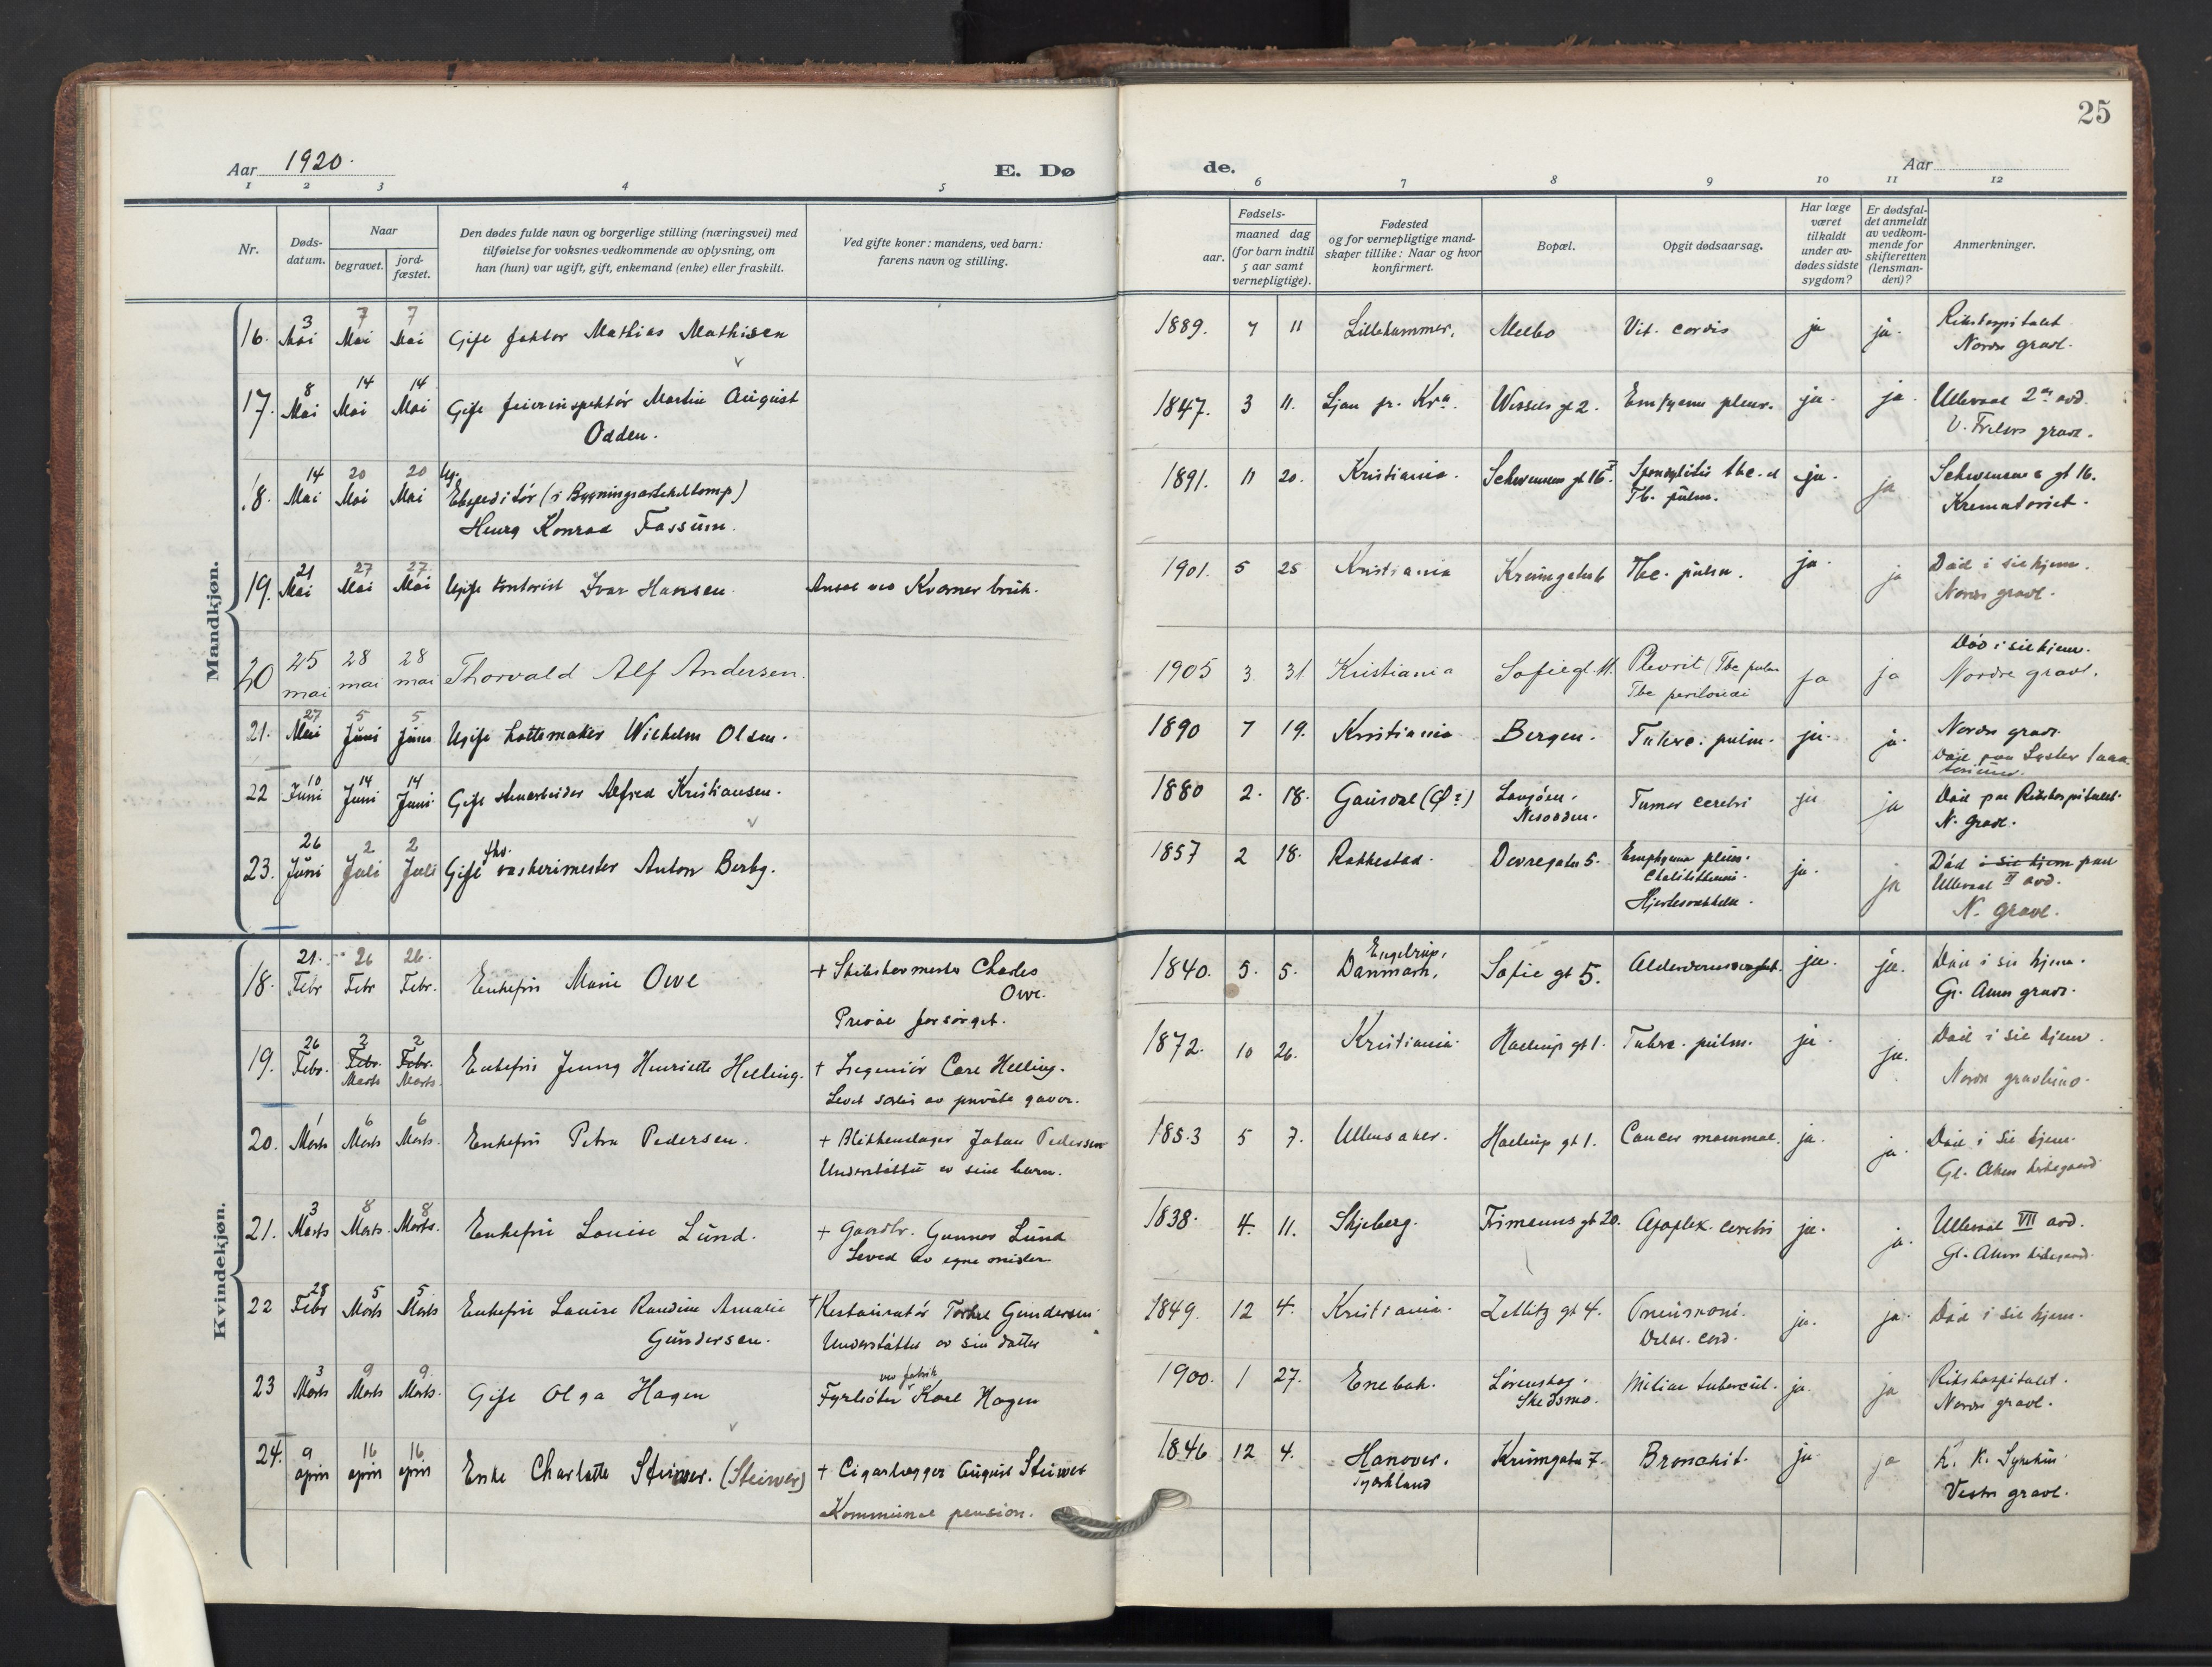 25
Aar 1920. E. Dø de. Aar
1 2 3 4 5 6 7 8 9 10 11 12
Nr. Døds-datum. Naar begravet. jord-fæstet. Den dødes fulde navn og borgerlige stilling (næringsvei) med tilføielse for voksnes vedkommende av oplysning, om han (hun) var ugift, gift, enkemand (enke) eller fraskilt. Ved gifte koner: mandens, ved barn: farens navn og stilling. Fødsels- aar. maaned dag (for barn indtil 5 aar samt vernepligtige). Fødested og for vernepligtige mand-skaper tillike: Naar og hvor konfirmert. Bopæl. Opgit dødsaarsag. Har læge været tilkaldt under av-dødes sidste sygdom? Er dødsfal-det anmeldt av vedkom-mende for skifteretten (lensman-den)? Anmerkninger.
Mandkjøn.
16. 3 Mai 7 Mai 7 Mai Gift faktor Mathias Mathisen 1889. 7 11 Lillehammer. Melbo Vit. cordis ja ja. Rikshospitalet
Nordre gravl.
17. 8 Mai 14 Mai 14 Mai Gift feierinspektør Martin August 1847. 3 11. Ljan pr. Kra. Wessels gt 2. Empyema pleur. ja. ja. Ullevaal 2en avd.
Odden. V. Frelsers gravl.
18. 14 Mai 20 Mai 20 Mai Ug. Ekspeditør (i Bygningsartikelkomp) 1891. 11 20. Kristiania. Schwensens gt 16 I Spondylitis tbc. et ja. ja Schwensens gt 16.
Henry Konrad Fossum. Tb. pulm. Krematoriet.
19. 21 Mai 27 Mai 27 Mai Ugift kontorist Ivar Hansen. Ansat ved Kværner bruk. 1901. 5 25 Kristiania Krumgaten 6 Tbc. pulm. ja. ja Død i sit hjem.
Nordre gravl.
20 25 mai 28 mai 28 mai Thorvald Alf Andersen. 1905 3 31 Kristiania Sofiegt. 11. Plevrit (Tbc pulm ja ja Død i sit hjem.
Tbc peritonei Nordre gravl.
21. 27 Mai 5 Juni 5 Juni Ugift hattemaker Wilhelm Olsen. 1890 7 19. Kristiania Bergen. Tuberc. pulm. ja. ja. Nordre gravl.
Død paa Lyster sana
torium.
22 10 Juni 14 Juni 14 Juni Gift stenarbeider Alfred Kristiansen. 1880 2. 18. Gausdal (Ø?) Nesodden. Tumor cerebri ja ja Død paa Rikshospitalet.
N. Gravl.
23. 26 Juni 2 Juli 2 Juli Gift fhv. vaskerimester Anton Berby. 1857 2 18. Rakkestad. Dovregaten 5. Empyema pleur. ja. ja Død i sit hjem paa
Ullevaal II avd.
Hjertesvakkelse. N. Gravl.
Kvindekjøn.
18. 21. Febr 26 Febr 26. Febr. Enkefru Marie Owe + Skibstømmerm. Charles 1840. 5. 5. Engelrup, Danmark, Sofie gt 5. Alderdomssvaghet. ja. ja. Død i sit hjem.
Owe. Gl. Akers gravl.
Privat forsørget.
19. 26 Febr. 2 Febr. Marts 2 Febr. Marts Enkefru Jenny Henriette Helling. + Ingeniør Carl Helling. 1872. 10 26. Kristiania. Haxthausens gt 1. Tuberc. pulm. ja. ja. Død i sit hjem.
Levet av private gaver. Nordre gravlund.
20. 1 Marts 6 Marts 6 Marts. Enkefru Petra Pedersen. + Blikkenslager Johan Pedersen 1853 5 7. Ullensaker. Cancer mammae. ja. ja. Død i sit hjem.
Understøttet av sine barn. Gl. Akers kirkegaard
21. 3 Marts 8 Marts. 8 Marts. Enkefru Louise Lund. + Gaardbr. Gunnar Lund 1838. 4. 11. Skjeberg. Trimenns gt 20. Apoplex. cerebri ja. ja. Ullevaal VII avd.
Leved av egne midler Gl. Akers kirkegaard.
22 28 Febr 5 Marts 5 Marts Enkefru Louise Randine Amalie + Restauratør Torkel Gundersen 1849. 12 4. Kristiania. Zetlitz gt 4. Pneumoni. ja. ja. Død i sit hjem.
Gundersen. Understøttet av sin datter Dilat. cord.
23 3 Marts 9 Marts 9. Marts. Gift Olga Hagen Fyrbøter ved fabrik Karl Hagen 1900. 1 27. Enebak. Lørenskog. Miliær tubercul. ja. ja Rikshospitalet.
Skedsmo. Nordre gravl.
24. 9 april 16 april 16 april Enke Charlotte Steinwer. (Steinwer) + Cigarlægger August Steinwer 1846 12 4. Hanover. Krumgaten 7. Bronchit. ja ja K. K. Sykehus
Tyskland Vestre gravl.
Kommunal pension.